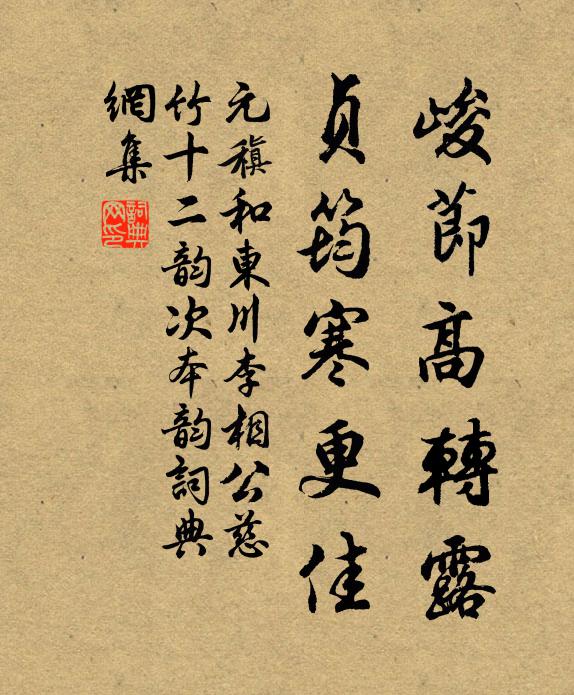 峻節高轉露
貞筠寒更佳
元稹和東川李相公慈
竹十二韵次本韵詞典
網集
詞典網印